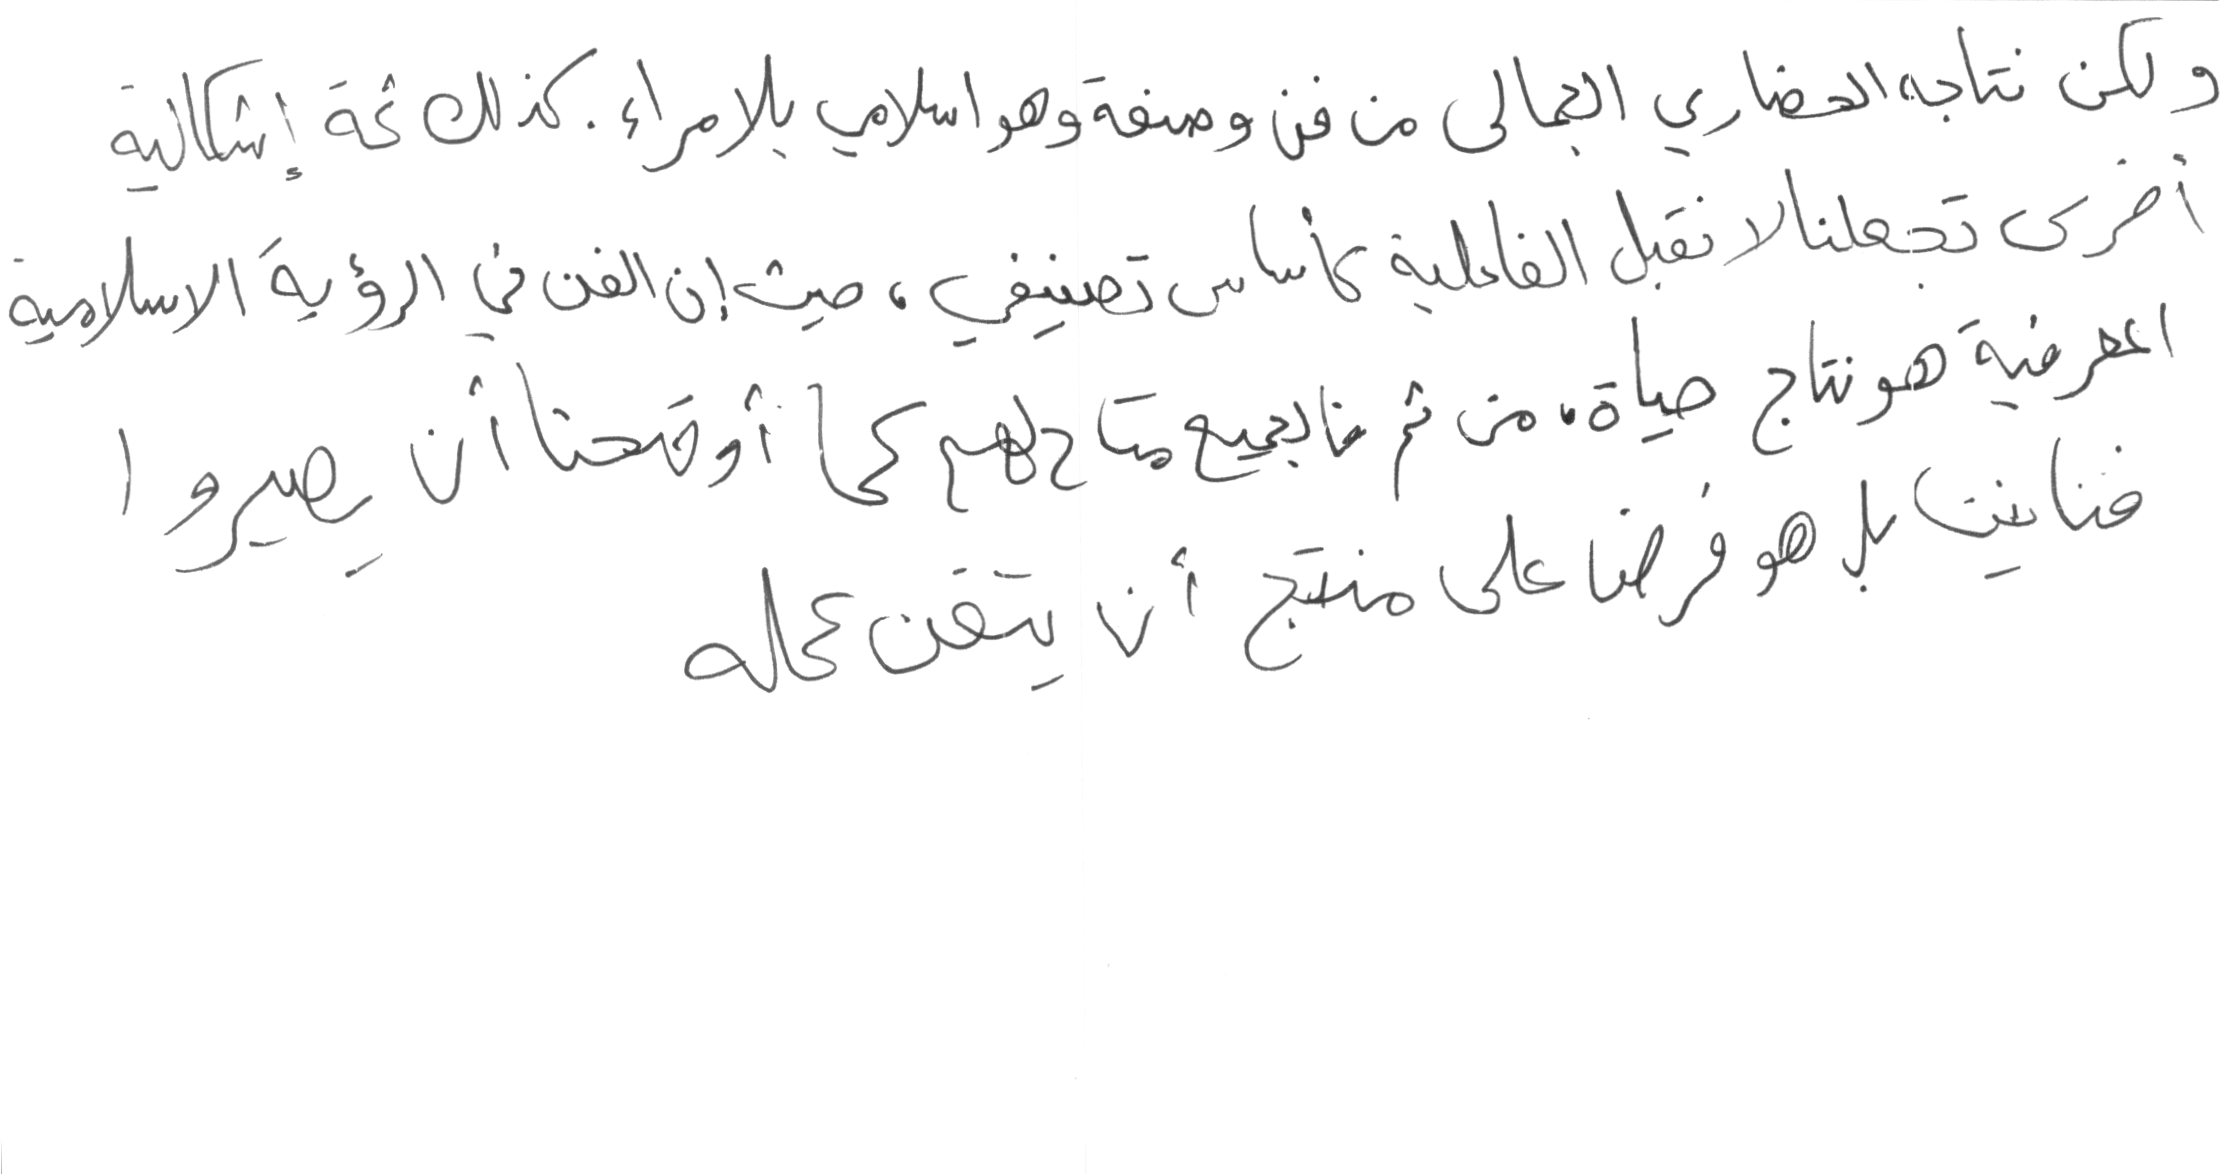 ولكن نتاجه الحضاري الجمالى من فن وصفة وهو اسلامي بلا مراء. كذلك ثمة إشكالية
أخرى تجعلنا لا نقبل الفاعلية كأساس تصنيفي، حيث إن الفن في الرؤية الاسلامية
المعرفية هو نتاج حياة، من ثم فالجميع متاح لهم كما أوضحنا أن يصيروا
فنانين بل هو فرضا على منتج أن يتقن عمله